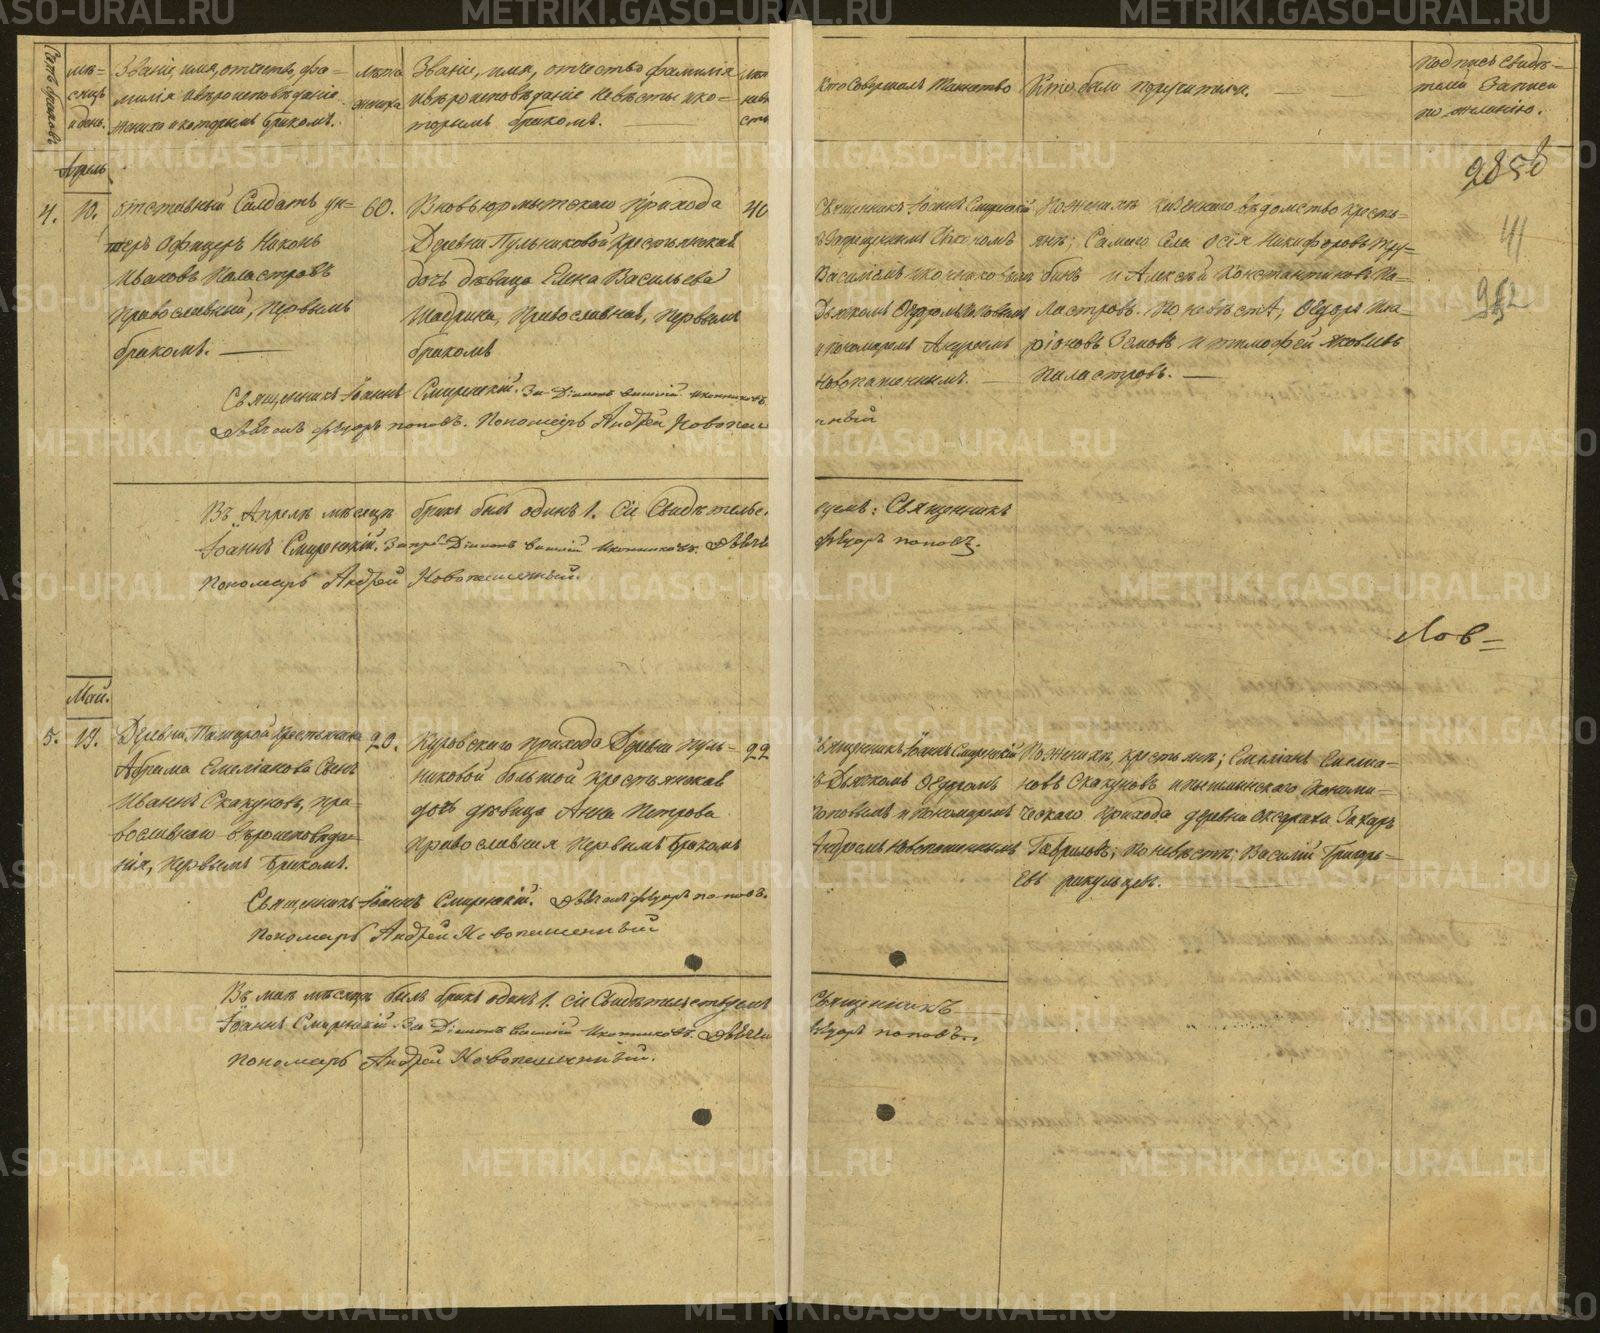 Счетъ браковъ
мѣ-
сяцъ
и день.
Званіе, имя, отчество, фа-
милія и вѣроисповѣданіе
жениха и которымъ бракомъ.
лѣта
жениха
Званіе, имя, отчество фамилія
и вѣроисповѣданіе невѣсты и ко-
торымъ бракомъ.
Кто совершалъ таинство
Кто были поручители.
подпись свидѣ-
телей записи
по желанію.
Апрель
4.
10.
отставный Салдатъ ун-
теръ офицеръ Никонъ
Ивановъ Паластровъ
Православный, Первымъ
бракомъ.
60.
Вновьюрмытскаго Прихода
Деревни Пульниковой крестьянская
дочь дѣвица Елена Васильева
Шадрина, Православная, первымъ
бракомъ
40
Священникъ Іоаннъ Смиренскій
Василіемъ Иконниковымъ
Дьячкомъ Ѳедоромъ Поповымъ
и пономаремъ Андреемъ
Новопашеннымъ.
По женихѣ казеннаго вѣдомства кресть-
яне; Самаго Села Осія Никифоровъ Тру-
бинъ и Алексѣй Константиновъ Па-
ластровъ. По невѣстѣ, Ѳедоръ Ила-
ріоновъ Земовъ и тимофей Яковлевъ
Паластровъ.
2858
41
982
Священникъ Іоаннъ Смиренскій. За Діакона василій Иконниковъ.
Дьячекъ ѳедоръ поповъ. Пономарь Андрей Новопаш
енный
Въ Апрелѣ мѣсяцѣ бракъ былъ одинъ 1. Сіе Свидѣтельс.
вуемъ: Священникъ
Іоаннъ Смиренскій. За Діакона василій Иконниковъ. Дьяче
ѳедоръ поповъ.
Пономарь Андрей Новопашенный.
Лов=
Май.
5.
19.
Деревни Талицрой крестьянина
Абрама Емеліанова Сынъ
Иванъ Скакуновъ, пра-
вославнаго вѣроисповѣда-
нія, первымъ бракомъ.
20.
Куровскаго прихода Деревни пуль-
никовой большой крестьянская
дочь дѣвица Анна Петрова
Православная первымъ бракомъ
22
Священникъ Іоаннъ Смиренскій
ъ Дьячкомъ Ѳедоромъ
Поповымъ и пономаремъ
Андреемъ Новопашеннымъ
По женихѣ, крестьяне; Емеліанъ Емелиа-
новъ Скакуновъ и пышминскаго Економи-
ческаго прихода деревни Захаръ
Гавриловъ; По невѣстѣ; Василій Григорь-
евъ рякульцев.
Священникъ Іоаннъ Смиренскій. Дьячекъ ѳедоръ поповъ.
Пономарь Андрей Новопашенный
Въ маѣ мѣсяцѣ былъ бракъ одинъ 1. Сіе Свидѣтельствуемъ
Священникъ
Іоаннъ Смиренскій. За Діакона василій Иконниковъ. Дьяче
ѳедоръ поповъ.
Пономарь Андрей Новопашенный.
METRIKI.GASO-URAL.RU